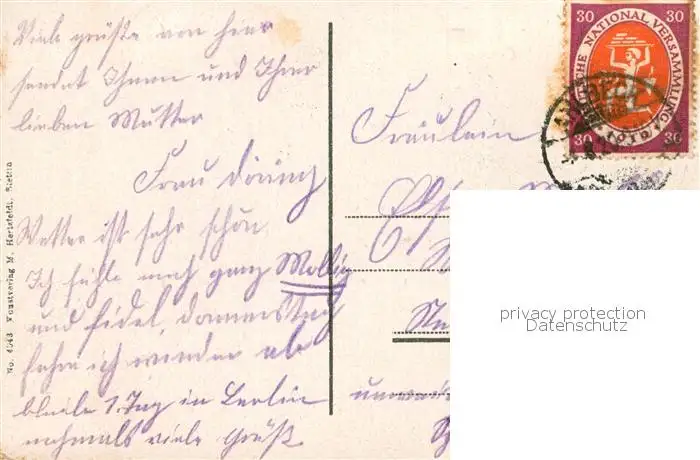 Viele grüße von hier
sendet Ihnen und Ihrer
lieben Mutter
Frau Döring
Wetter ist sehr schön
Ich fühle mich ganz Mollig
und fidel, donnerstag
fahre ich wieder ab
bleibe 1. Tag in Berlin
nochmals viele Grüße
No. 4943 Kunstverlag M. Herzfeldt, Stettin
Fräulein
30 30
DEUTSCHE NATIONAL VERSAMMLUNG
1919
30 30
privacy protection
Datenschutz